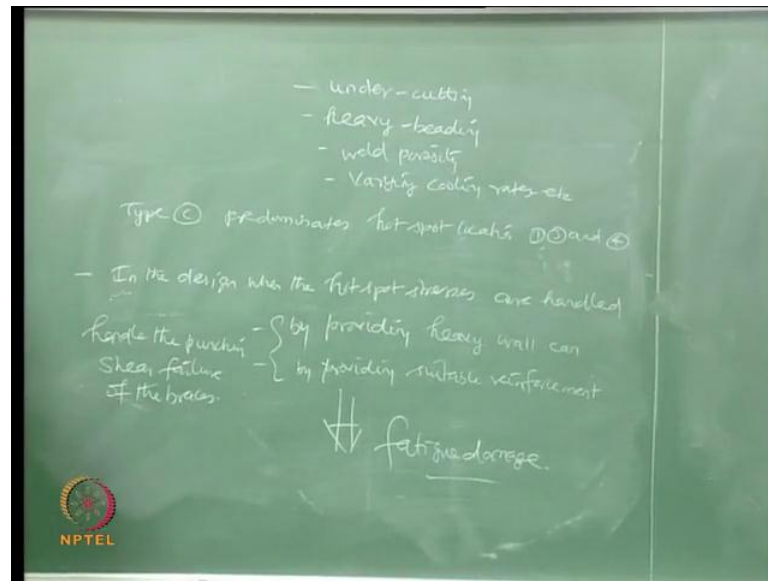 - under-cutting
- heavy-beading
- weld porosity
- Varying cooling rates etc
Type C predominates hot spot locatn ① ③ and ④
- In the design when the hot spot stresses are handled
handle the punchin - { by providing heavy wall can
shear failure - { by providing suitable reinforcement
of the braces.
fatigue damage.
NPTEL